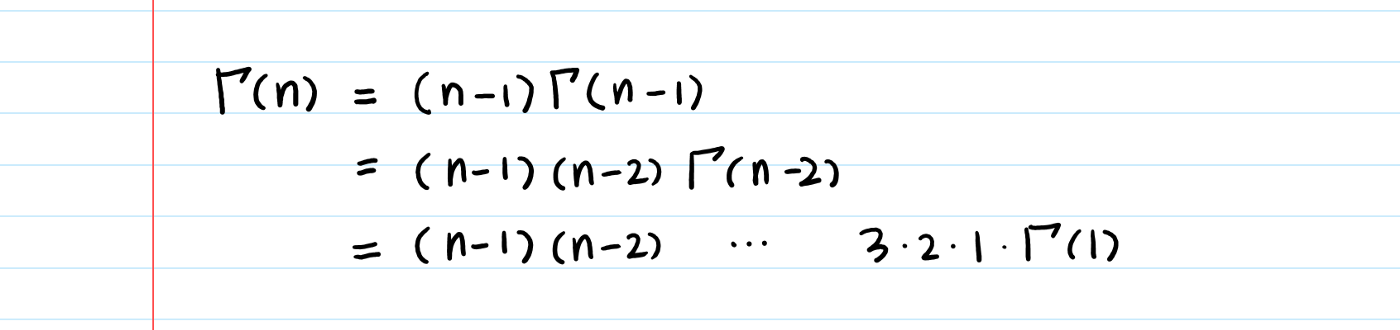 Γ(n) = (n-1) Γ(n-1)
= (n-1) (n-2) Γ(n-2)
= (n-1) (n-2) ... 3·2·1·Γ(1)